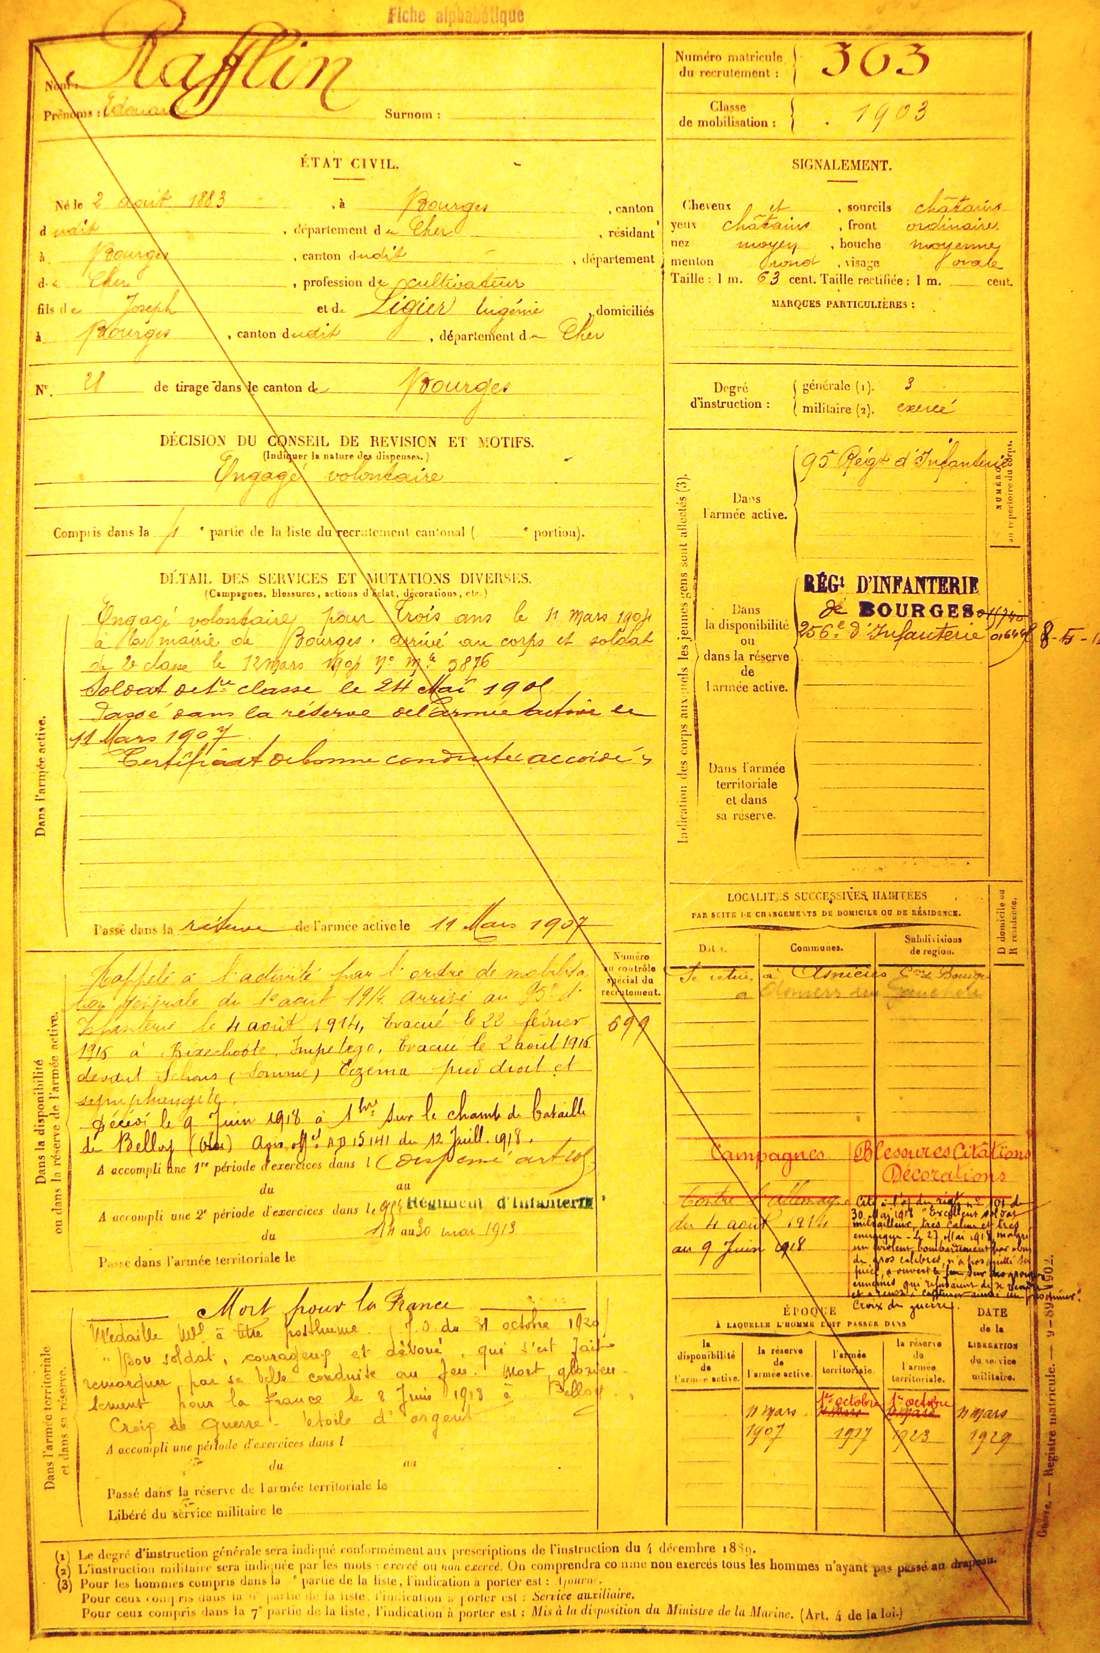 Fiche alphabétique
Nom : Rafflin
Prénoms : Edouard
Surnom :
Numéro matricule
du recrutement : 363
Classe
de mobilisation : 1903
ÉTAT CIVIL.
Né le 2 août 1883, à Bourges, canton
dudit, département du Cher, résidant
à Bourges, canton dudit, département
du Cher, profession de cultivateur
fils de Joseph et de Ligier Eugénie, domiciliés
à Bourges, canton dudit, département du Cher
N° 21 de tirage dans le canton de Bourges
SIGNALEMENT.
Cheveux et, sourcils châtains
yeux châtains, front ordinaire
nez moyen, bouche moyenne
menton rond, visage ovale
Taille : 1 m. 63 cent. Taille rectifiée : 1 m. cent.
MARQUES PARTICULIÈRES :
Degré
d'instruction :
générale (1). 3
militaire (2). exercé
DÉCISION DU CONSEIL DE REVISION ET MOTIFS.
(Indiquer la nature des dispenses.)
Engagé volontaire
Compris dans la e partie de la liste du recrutement cantonal ( e portion).
DÉTAIL DES SERVICES ET MUTATIONS DIVERSES.
(Campagnes, blessures, actions d'éclat, décorations, etc.)
Dans l'armée active.
Engagé volontaire pour trois ans le 11 mars 1904
à la mairie de Bourges. arrivé au corps et soldat
de 2e classe le 12 mars 1904 No Mle 3876
Soldat de 1re classe le 24 Mai 1905
Passé dans la réserve de l'armée active le
11 Mars 1907
Certificat de bonne conduite accordé
Passé dans la réserve de l'armée active le 11 Mars 1907
Indication des corps auxquels les jeunes gens sont affectés (3).
NUMÉRO
au répertoire du corps.
Dans
l'armée active.
95 Régt d'Infanterie
Dans
la disponibilité
ou
dans la réserve
de
l'armée active.
RÉGt D'INFANTERIE
de BOURGES
256e d'Infanterie
Dans l'armée
territoriale
et dans
sa réserve.
LOCALITÉS SUCCESSIVES HABITÉES
PAR SUITE DE CHANGEMENTS DE DOMICILE OU DE RÉSIDENCE.
Dates.
Communes.
Subdivisions
de région.
D domicile ou
R résidence.
Se retire à Asnières Cne de Bourges
Dans la disponibilité
ou dans la réserve de l'armée active.
Numéro
au contrôle
spécial du
recrutement.
699
Rappelé à l'activité par l'ordre de mobilisa
tion générale du 1er août 1914 arrivé au 95e Rt
Infanterie le 4 août 1914, Evacué le 22 février
1915 à Bixschoote. Impétigo. Evacué le 2 août 1916
devant (Somme) Eczema pied droit et
Décédé le 9 Juin 1918 à 1 hre sur le champ de bataille
de Belloy (Oise) Avis offel AD 15141 du 12 Juill. 1918.
A accompli une 1re période d'exercices dans l (dispensé art 20)
du au
A accompli une 2e période d'exercices dans le 95e Régiment d'Infanterie
du 14 au 30 mai 1913
Passé dans l'armée territoriale le
Campagnes
Contre l'Allemagne
du 4 août 1914
au 9 Juin 1918
Blessures Citations
Décorations
Cité à l'o/ du régt n° 101 du
30 Mai 1918 "Excellent soldat
mitrailleur, très calme et très
énergique. Le 27 Mai 1918, malgré
un violent bombardement par obus
de gros calibres, n'a pas quitté sa
pièce, a ouvert le feu sur des groupes
ennemis qui refusaient de se rendre
Croix de guerre.
Dans l'armée territoriale
et dans sa réserve.
Mort pour la France
Médaille Mle à titre posthume J.O. du 31 octobre 1920
"Bon soldat, courageux et dévoué, qui s'est fait
remarquer par sa belle conduite au feu. Mort glorieu-
sement pour la France le 8 Juin 1918 à Belloy".
Croix de Guerre étoile d'argent
A accompli une période d'exercices dans l
du au
Passé dans la réserve de l'armée territoriale le
Libéré du service militaire le
ÉPOQUE
À LAQUELLE L'HOMME DOIT PASSER DANS
DATE
de la
LIBÉRATION
du service
militaire.
la
disponibilité
de
l'armée active.
la réserve
de
l'armée active.
l'armée
territoriale.
la réserve
de
l'armée
territoriale.
11 mars
1907
1er octobre
1917
1er octobre
1923
11 mars
1929
(1) Le degré d'instruction générale sera indiqué conformément aux prescriptions de l'instruction du 4 décembre 1889.
(2) L'instruction militaire sera indiquée par les mots : exercé ou non exercé. On comprendra comme non exercés tous les hommes n'ayant pas passé au drapeau.
(3) Pour les hommes compris dans la e partie de la liste, l'indication à porter est : Ajourné.
Pour ceux compris dans la 6e partie de la liste, l'indication à porter est : Service auxiliaire.
Pour ceux compris dans la 7e partie de la liste, l'indication à porter est : Mis à la disposition du Ministre de la Marine. (Art. 4 de la loi.)